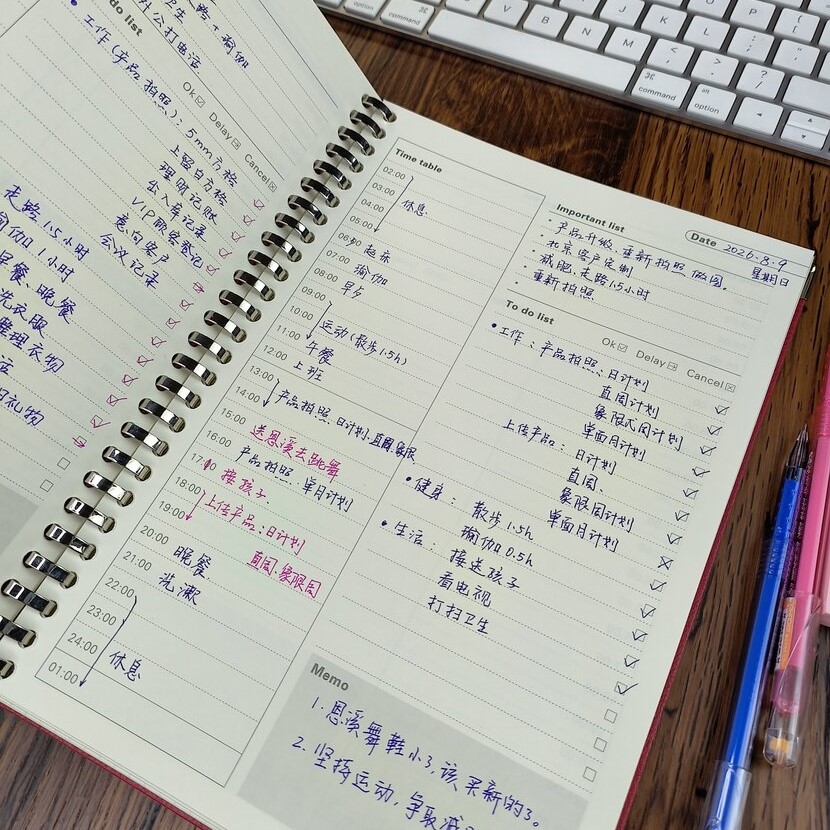 do list
工作(产品拍照): 5mm方格
上留白方格
理明记账
出入库记录
VIP顾客登记
意向客户
会议记录
Ok
Delay
Cancel
走路1.5小时
瑜伽1小时
早餐、晚餐
洗衣服
整理衣物
礼物
command
option
B
N
M
<
,
>
.
?
/
command
alt
option
Time table
02:00
03:00
04:00
休息
05:00
06:00
赵床
07:00
瑜伽
08:00
早歺
09:00
10:00
运动(散步1.5h)
11:00
午餐
12:00
上班
13:00
14:00
产品拍照:日计划.直周.象限
15:00
送恩溪去跳舞
16:00
产品拍照:单月计划
17:00
接孩子
18:00
上传产品:日计划
19:00
直周.象限周
20:00
晚餐
21:00
洗漱
22:00
23:00
24:00
休息
01:00
Important list
Date 2026.8.9
星期日
· 产品升级.重新拍照做图。
· 北京客户定制
· 减肥.走路1.5小时
· 重新拍照
To do list
Ok
Delay
Cancel
• 工作:产品拍照:日计划
直周计划
象限式周计划
单面月计划
上传产品:日计划
直周.
象限周计划
单面月计划
• 健身:散步1.5h
瑜伽0.5h
• 生活:接送孩子
看电视
打扫卫生
Memo
1. 恩溪舞鞋小了,该买新的了。
2. 坚持运动,争取减